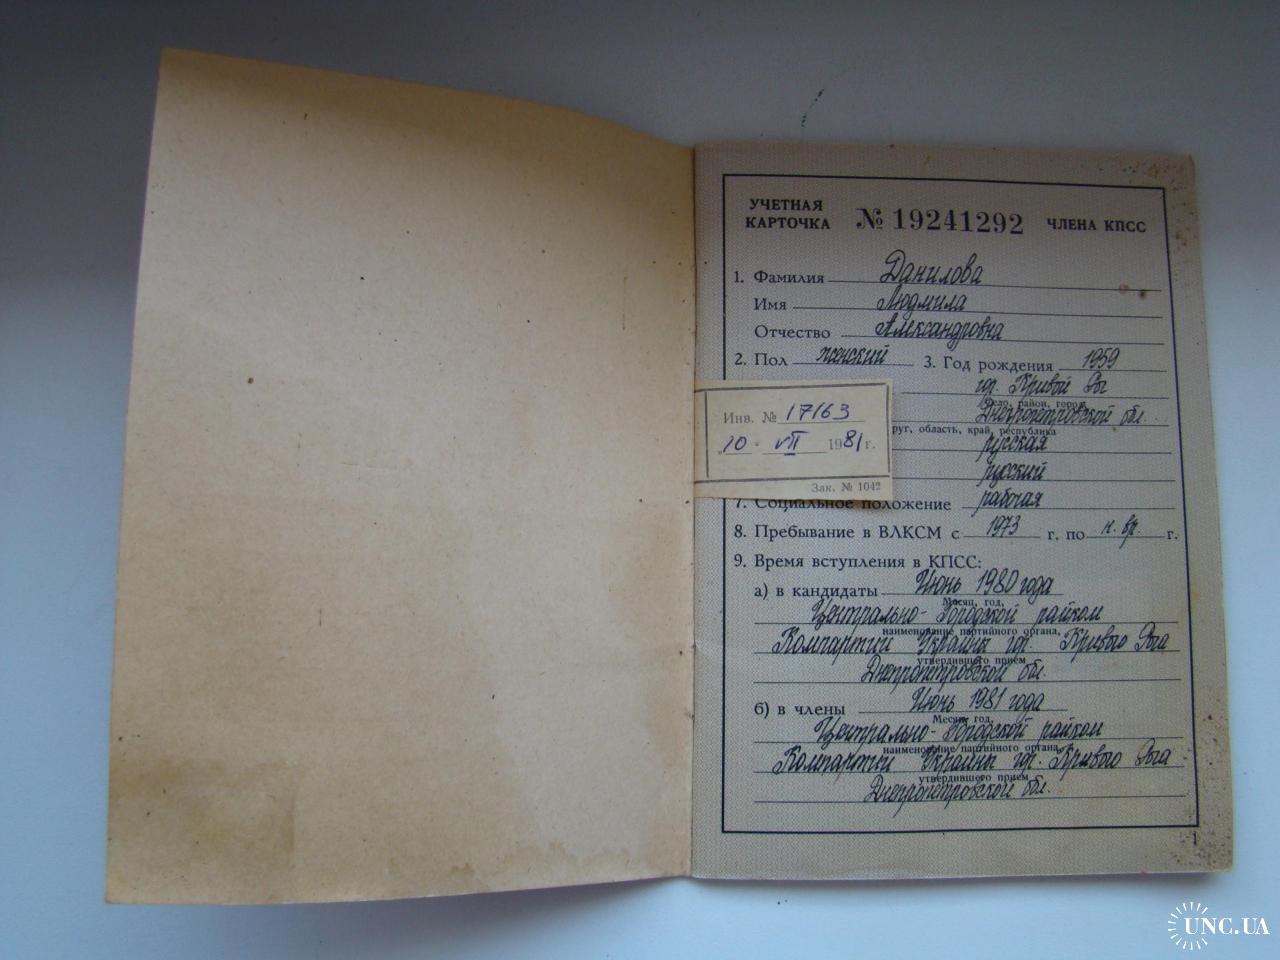 УЧЕТНАЯ КАРТОЧКА № 19241292 ЧЛЕНА КПСС
1. Фамилия Данилова
Имя Людмила
Отчество Александровна
2. Пол женский 3. Год рождения 1959
гор. Кривой Рог
село, район, город
Днепропетровской обл.
руг, область, край, республика
русская
русский
Инв. № 17163
10 VII 1981 г.
Зак. № 1042
7. Социальное положение рабочая
8. Пребывание в ВЛКСМ с 1973 г. по н. вр. г.
9. Время вступления в КПСС:
а) в кандидаты Июнь 1980 года
Месяц, год,
Центрально-Городской райком
наименование партийного органа,
Компартии Украины гор. Кривого Рога
утвердившего прием
Днепропетровской обл.
б) в члены Июнь 1981 года
Месяц, год,
Центрально-Городской райком
наименование партийного органа,
Компартии Украины гор. Кривого Рога
утвердившего прием
Днепропетровской обл.
1
UNC.UA